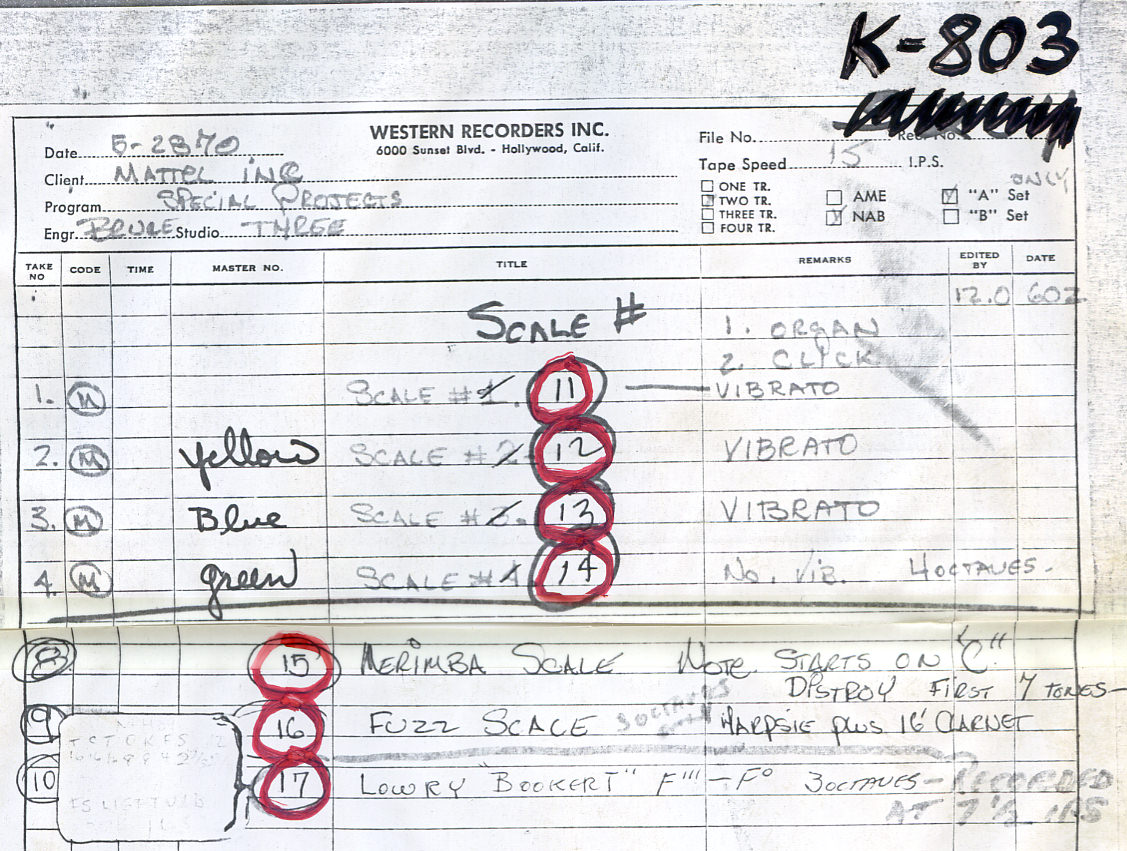 K-803
WESTERN RECORDERS INC.
6000 Sunset Blvd. - Hollywood, Calif.
Date 5-2870
Client MATTEL INC
Program SPECIAL PROJECTS
Engr. BRUCE Studio THREE
File No. Rec. No.
Tape Speed 15 I.P.S.
ONE TR.
TWO TR.
THREE TR.
FOUR TR.
AME
NAB
"A" Set ONLY
"B" Set
TAKE NO CODE TIME MASTER NO. TITLE REMARKS EDITED BY DATE
12.0 60Z
SCALE #
1. ORGAN
2. CLICK
1. M SCALE #1. 11 VIBRATO
2. M yellow SCALE #2 12 VIBRATO
3. M Blue SCALE #3. 13 VIBRATO
4. M green SCALE #4 14 NO. VIB. 4 OCTAVES.
8 15 MERIMBA SCALE NOTE STARTS ON "C"
DISTROY FIRST 7 TONES-
9 16 FUZZ SCALE 3 OCTAVES ONLY HARPSIE plus 16' CLARNET
10 17 LOWRY "BOOKERT" F''' - F° 3 OCTAVES - RECORDED
AT 7 ½ IPS